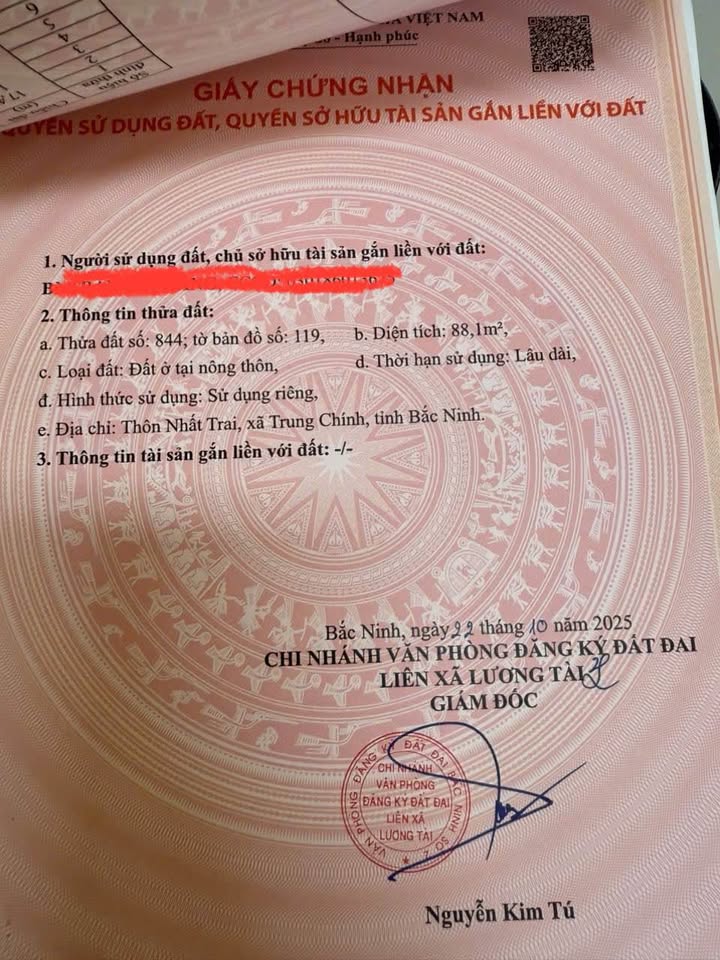 VIỆT NAM
- Hạnh phúc
GIẤY CHỨNG NHẬN
QUYỀN SỬ DỤNG ĐẤT, QUYỀN SỞ HỮU TÀI SẢN GẮN LIỀN VỚI ĐẤT
1. Người sử dụng đất, chủ sở hữu tài sản gắn liền với đất:
B
2. Thông tin thửa đất:
a. Thửa đất số: 844; tờ bản đồ số: 119, b. Diện tích: 88,1m²,
c. Loại đất: Đất ở tại nông thôn, d. Thời hạn sử dụng: Lâu dài,
đ. Hình thức sử dụng: Sử dụng riêng,
e. Địa chỉ: Thôn Nhất Trai, xã Trung Chính, tỉnh Bắc Ninh.
3. Thông tin tài sản gắn liền với đất: -/-
Bắc Ninh, ngày 22 tháng 10 năm 2025
CHI NHÁNH VĂN PHÒNG ĐĂNG KÝ ĐẤT ĐAI
LIÊN XÃ LƯƠNG TÀI
GIÁM ĐỐC
VĂN PHÒNG ĐĂNG KÝ ĐẤT ĐAI BẮC NINH SỐ 2
CHI NHÁNH
VĂN PHÒNG
ĐĂNG KÝ ĐẤT ĐAI
LIÊN XÃ
LƯƠNG TÀI
Nguyễn Kim Tú
Số hiệu
đỉnh thửa
1
2
3
4
5
6